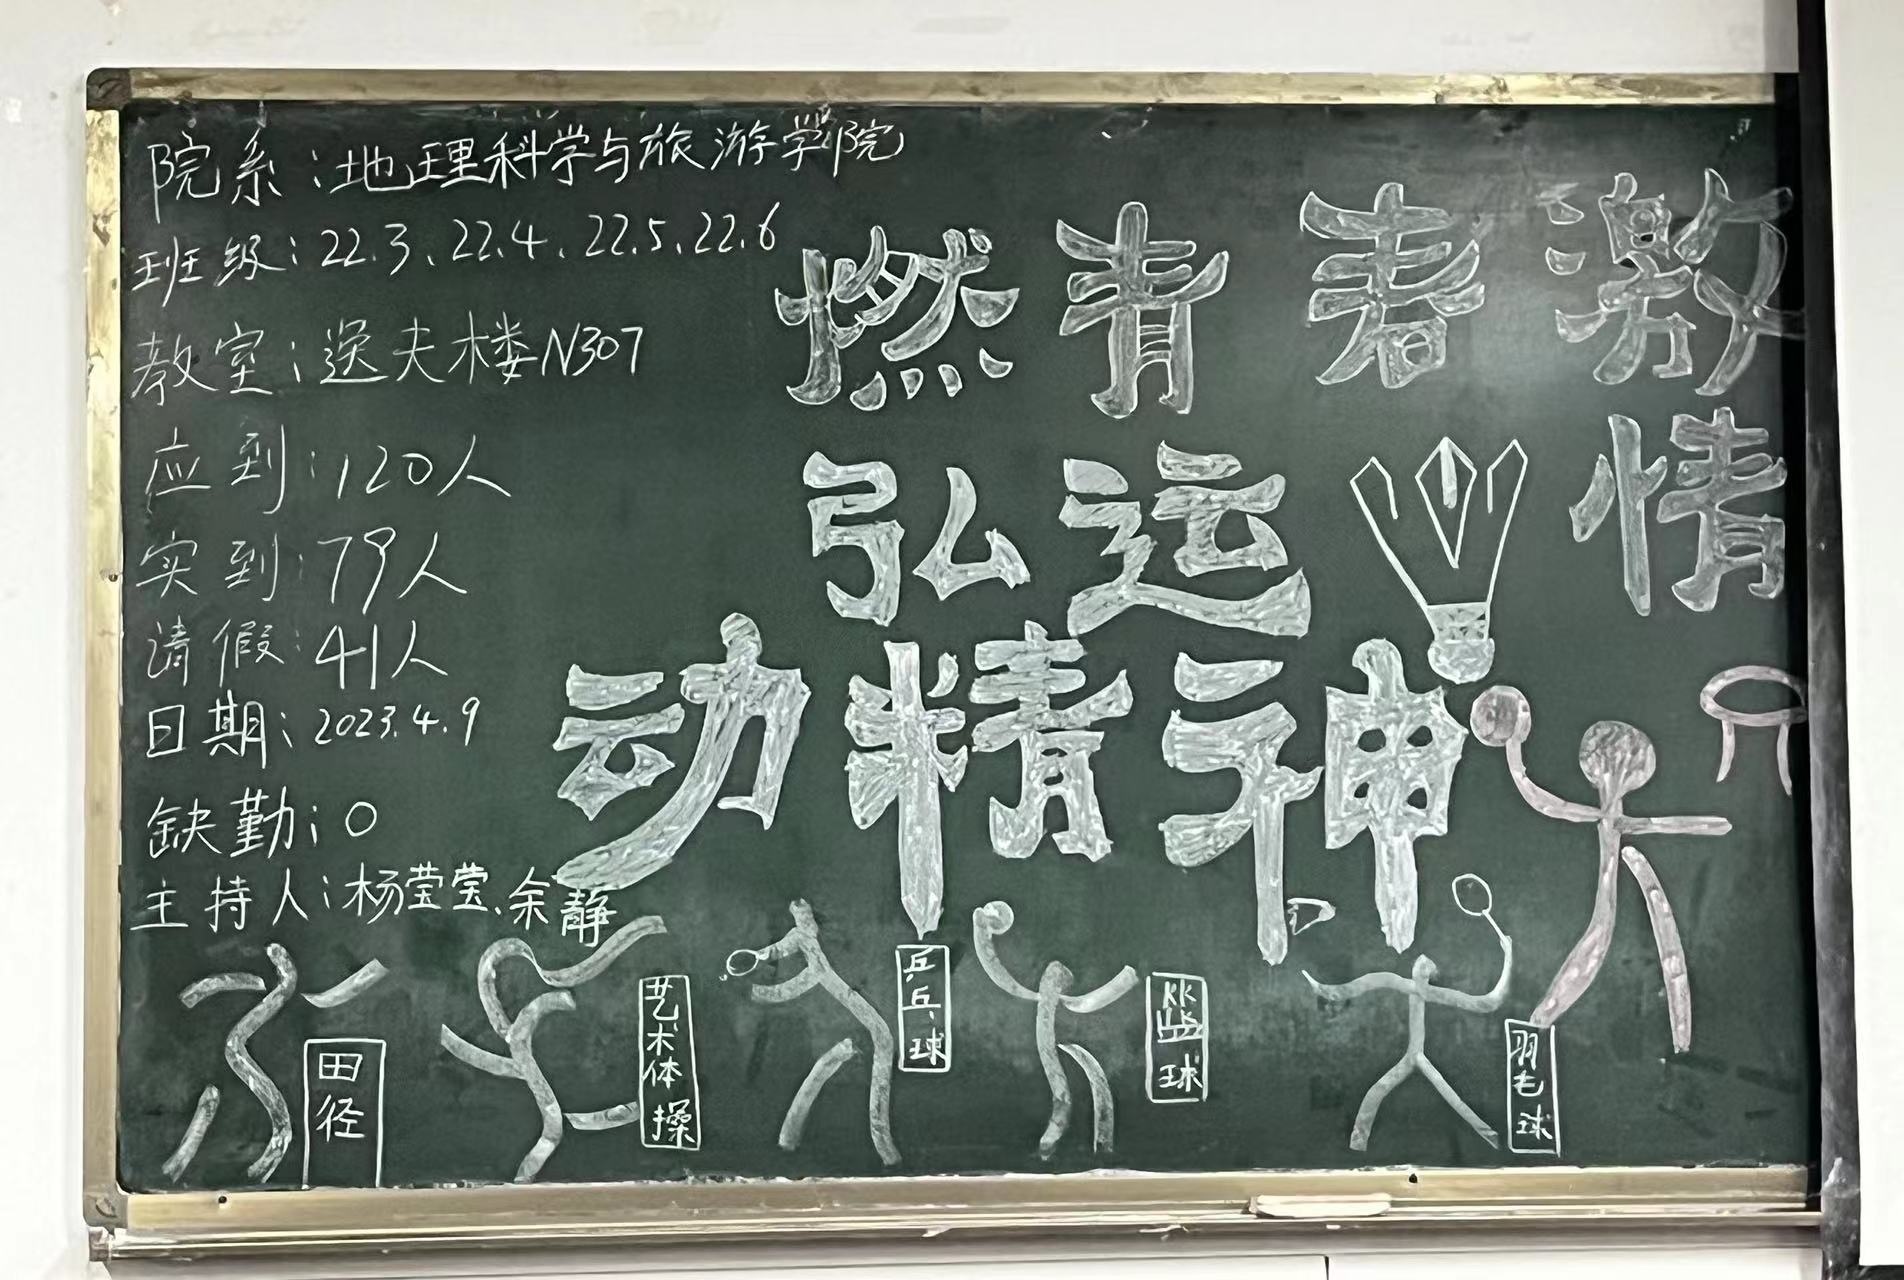 院系：地理科学与旅游学院
班级：22.3、22.4、22.5、22.6
教室：逸夫楼N307
应到：120人
实到：79人
请假：41人
日期：2023.4.9
缺勤：0
主持人：杨莹莹、余静
燃青春激
情
弘运
动精神
田径
艺术体操
乒乓球
篮球
羽毛球